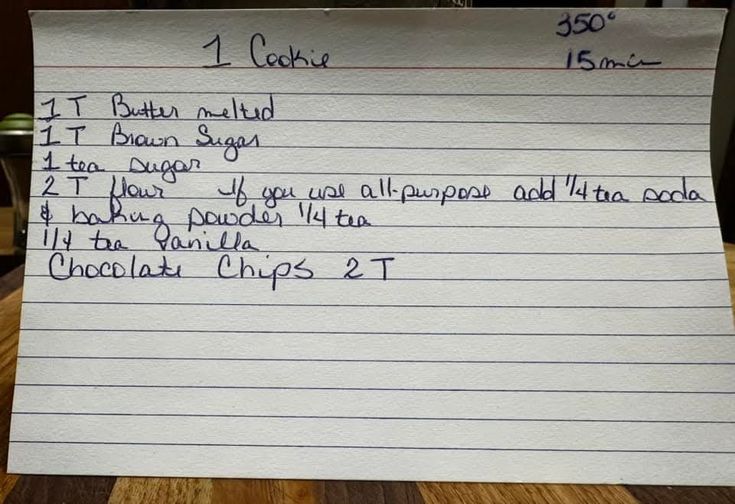 350°
1 Cookie
15 min
1 T Butter melted
1 T Brown Sugar
1 tea sugar
2 T flour If you use all-purpose add 1/4 tea soda
& baking powder 1/4 tea
1/4 tea Vanilla
Chocolate Chips 2 T